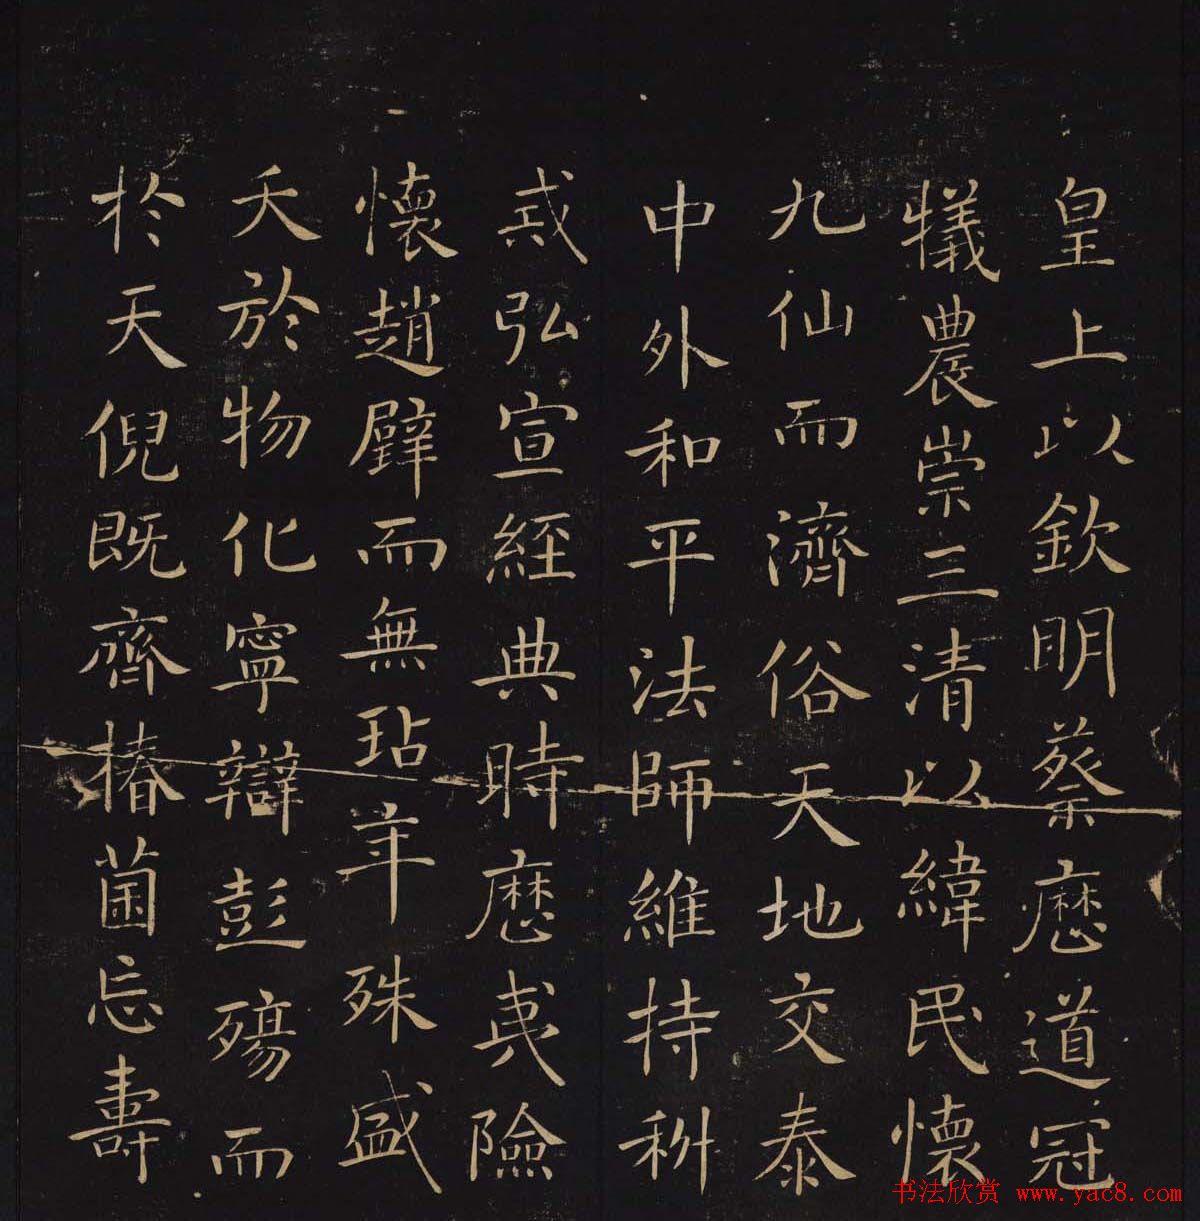 皇上以欽明蔡歷道冠
犧農崇三清以緯民懷
九仙而濟俗天地交泰
中外和平法師維持科
戒弘宣經典時歷夷險
懷趙璧而無玷年殊盛
夭於物化寧辯彭殤而
於天倪既齊椿菌忘壽
书法欣赏 www.yac8.com